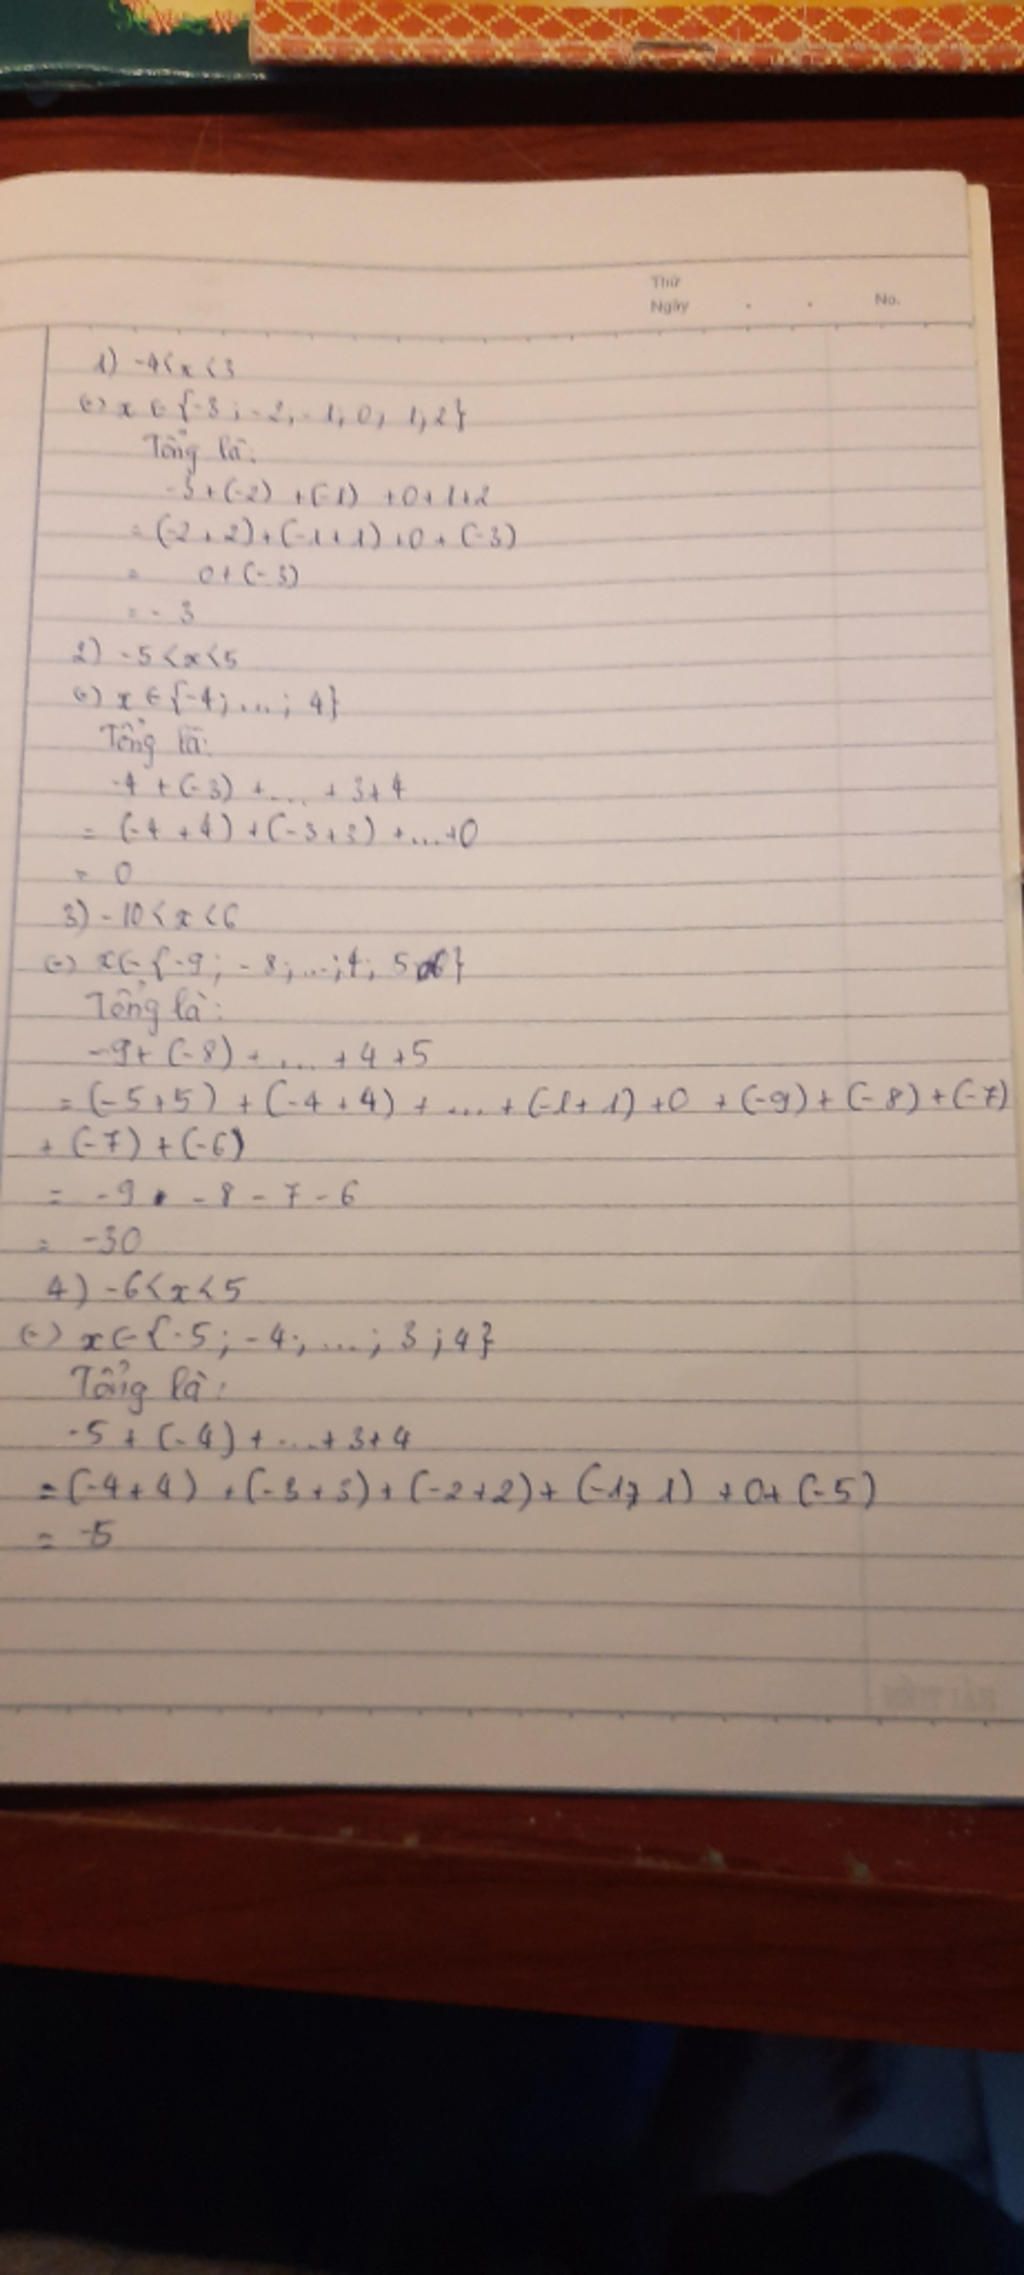 Thứ
Ngày . . No.
1) -4<x<3
(=) x ∈ {-3; -2; -1; 0; 1; 2}
Tổng là:
-3+(-2) +(-1) +0+1+2
= (-2+2)+(-1+1)+0+(-3)
= 0+(-3)
= -3
2) -5<x<5
(=) x ∈ {-4; ...; 4}
Tổng là:
-4 + (-3) + ... + 3+4
= (-4+4) + (-3+3) + ...+0
= 0
3) -10<x<6
(=) x ∈ {-9; -8; ...; 4; 5}
Tổng là:
-9+(-8) + ... +4+5
= (-5+5) + (-4+4) + ... + (-1+1) +0 + (-9) + (-8) + (-7)
+ (-7) + (-6)
= -9 - 8 - 7 - 6
= -30
4) -6<x<5
(=) x ∈ {-5; -4; ...; 3; 4}
Tổng là:
-5 + (-4) + ...+ 3+4
= (-4+4) + (-3+3) + (-2+2) + (-1+1) + 0+ (-5)
= -5